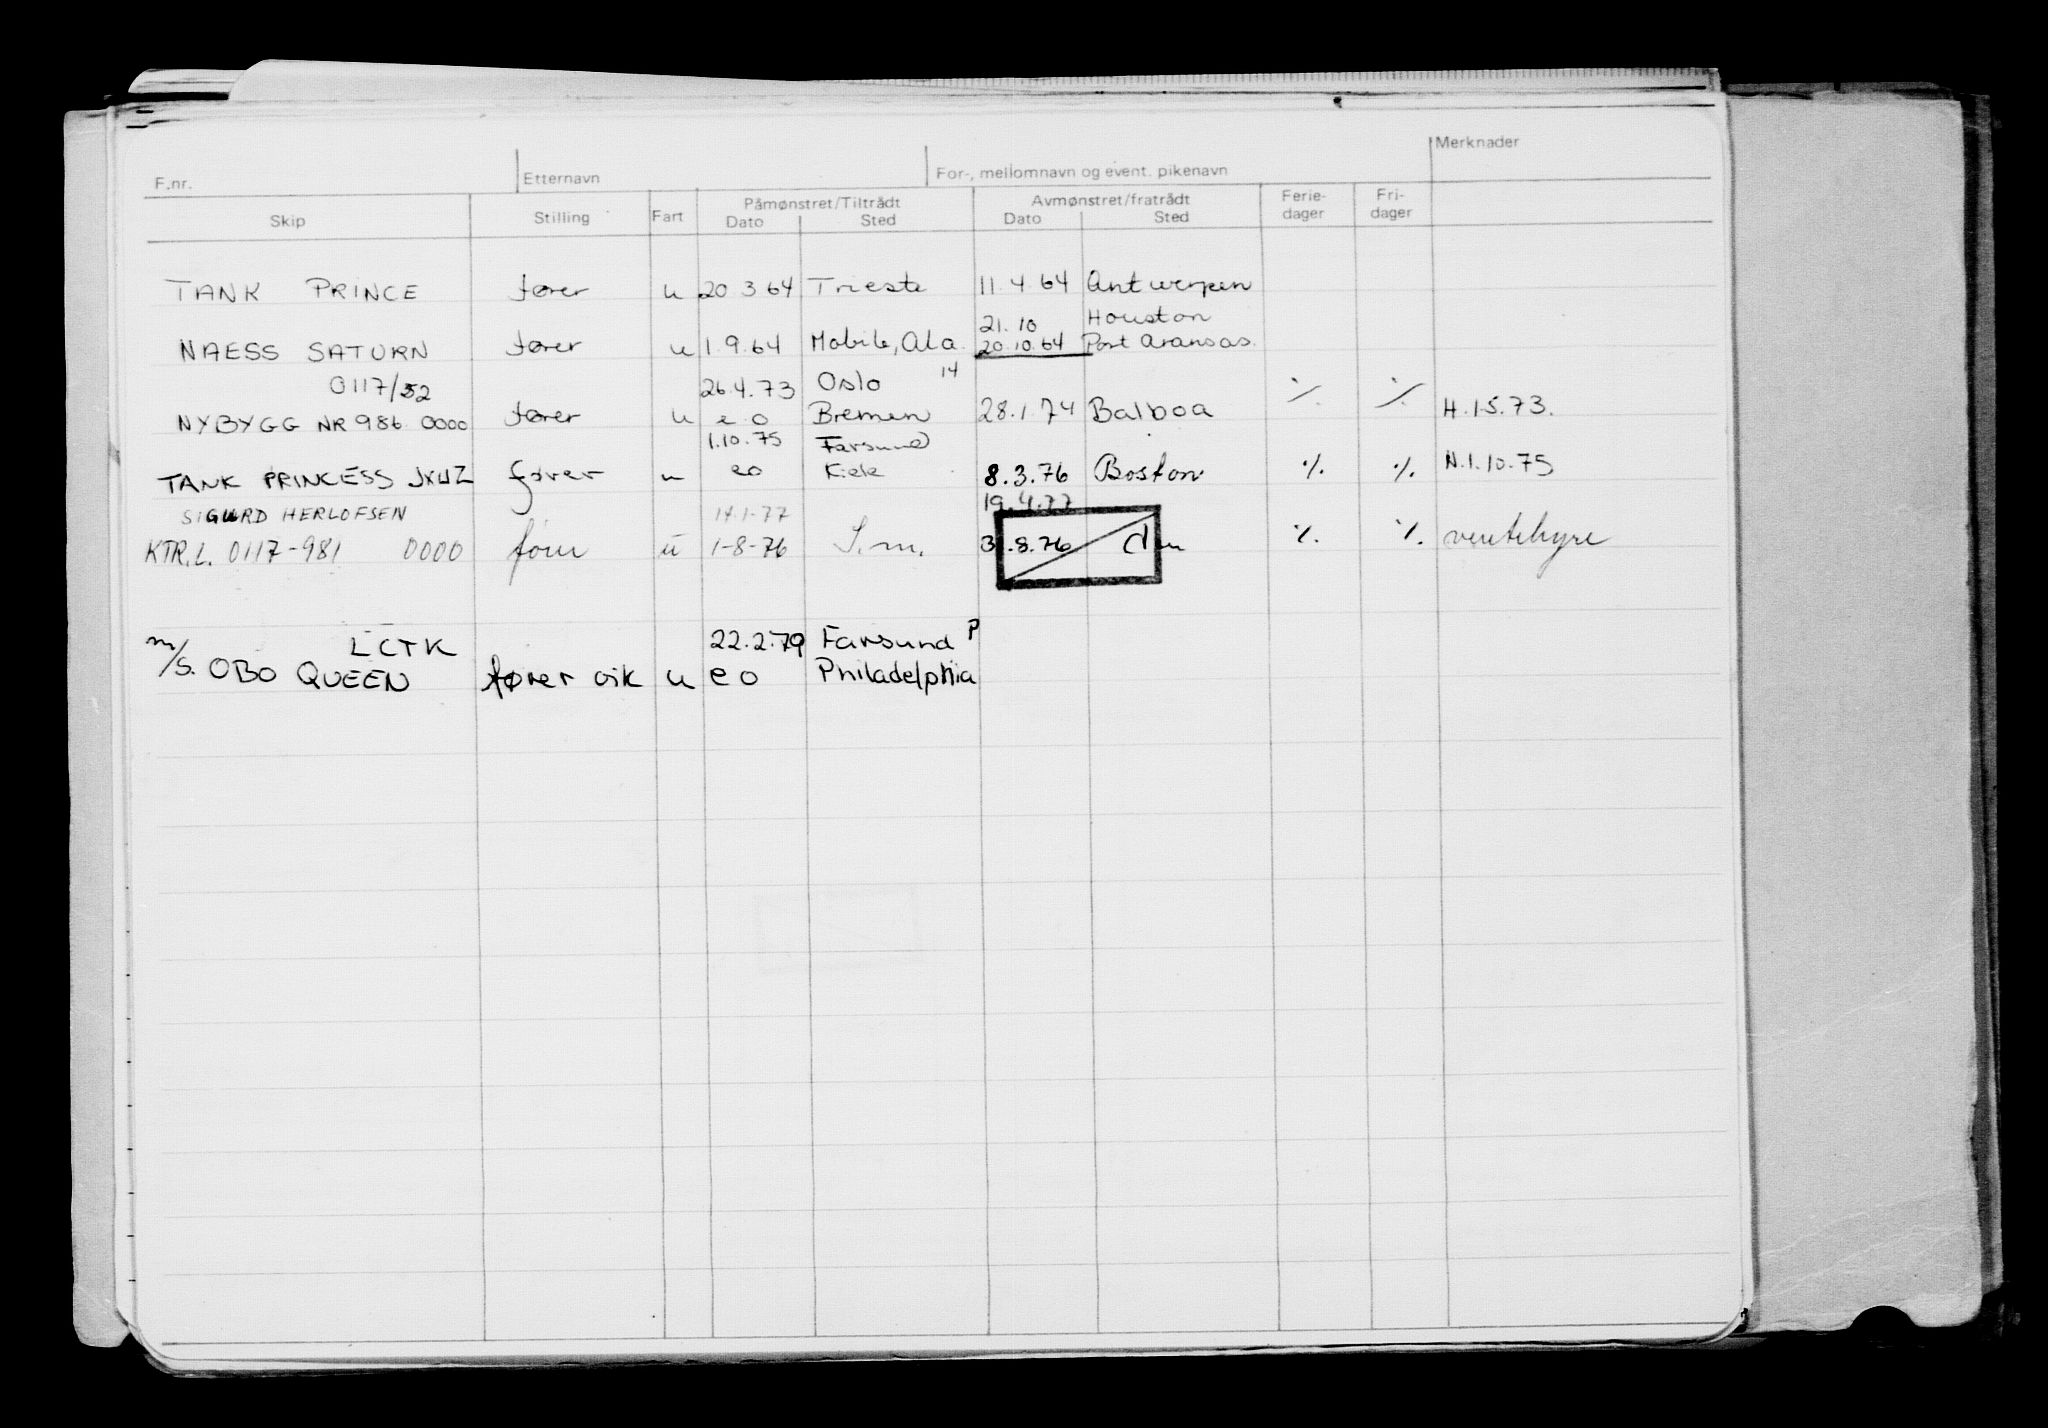 Merknader
F.nr. Etternavn For-, mellomnavn og event. pikenavn
Skip Stilling Fart Påmønstret/Tiltrådt Dato Sted Avmønstret/fratrådt Dato Sted Ferie-dager Fri-dager
TANK PRINCE fører u 20 3 64 Trieste 11 4 64 Antwerpen
21. 10 Houston
NAESS SATURN fører u 1.9.64 Mobile, Ala. 20.10.64 Port Aransas.
0117/52 26.4.73 Oslo 14
NYBYGG NR 986 0000 fører u e o Bremen 28.1.74 Balboa ٪ ٪ H.1.5.73.
1.10.75 Farsund
TANK PRINCESS JXUZ fører u eo Kiele 8.3.76 Boston ٪ ٪ H.1.10.75
SIGURD HERLOFSEN 14.1-77 19.4.77
KTR.L. 0117-981 0000 u 1-8-76 S.m. 8.76 ٪ ٪ ventehyre
LCTK 22.2.79 Farsund P
m/s. OBO QUEEN fører vik u e o Philadelphia